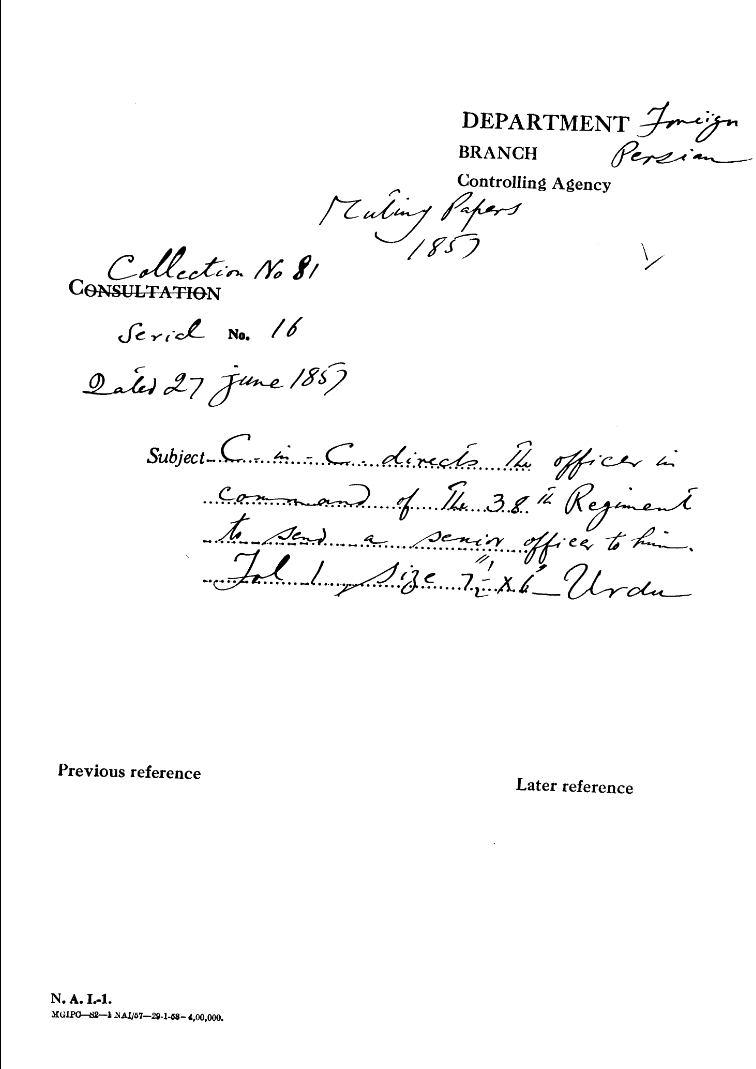 DEPARTMENT Foreign
BRANCH Persian
Controlling Agency
Mutiny Papers
1857
Collection No 81
CONSULTATION
Serial No. 16
Dated 27 June 1857
Subject C-in-C directs the officer in
command of the 38th Regiment
to send a senior officer to him.
Fol 1 Size 7½" x 6" Urdu
Previous reference
Later reference
N. A. I.-1.
MGIPC—S2—1 NAI/57—29-1-58—4,00,000.